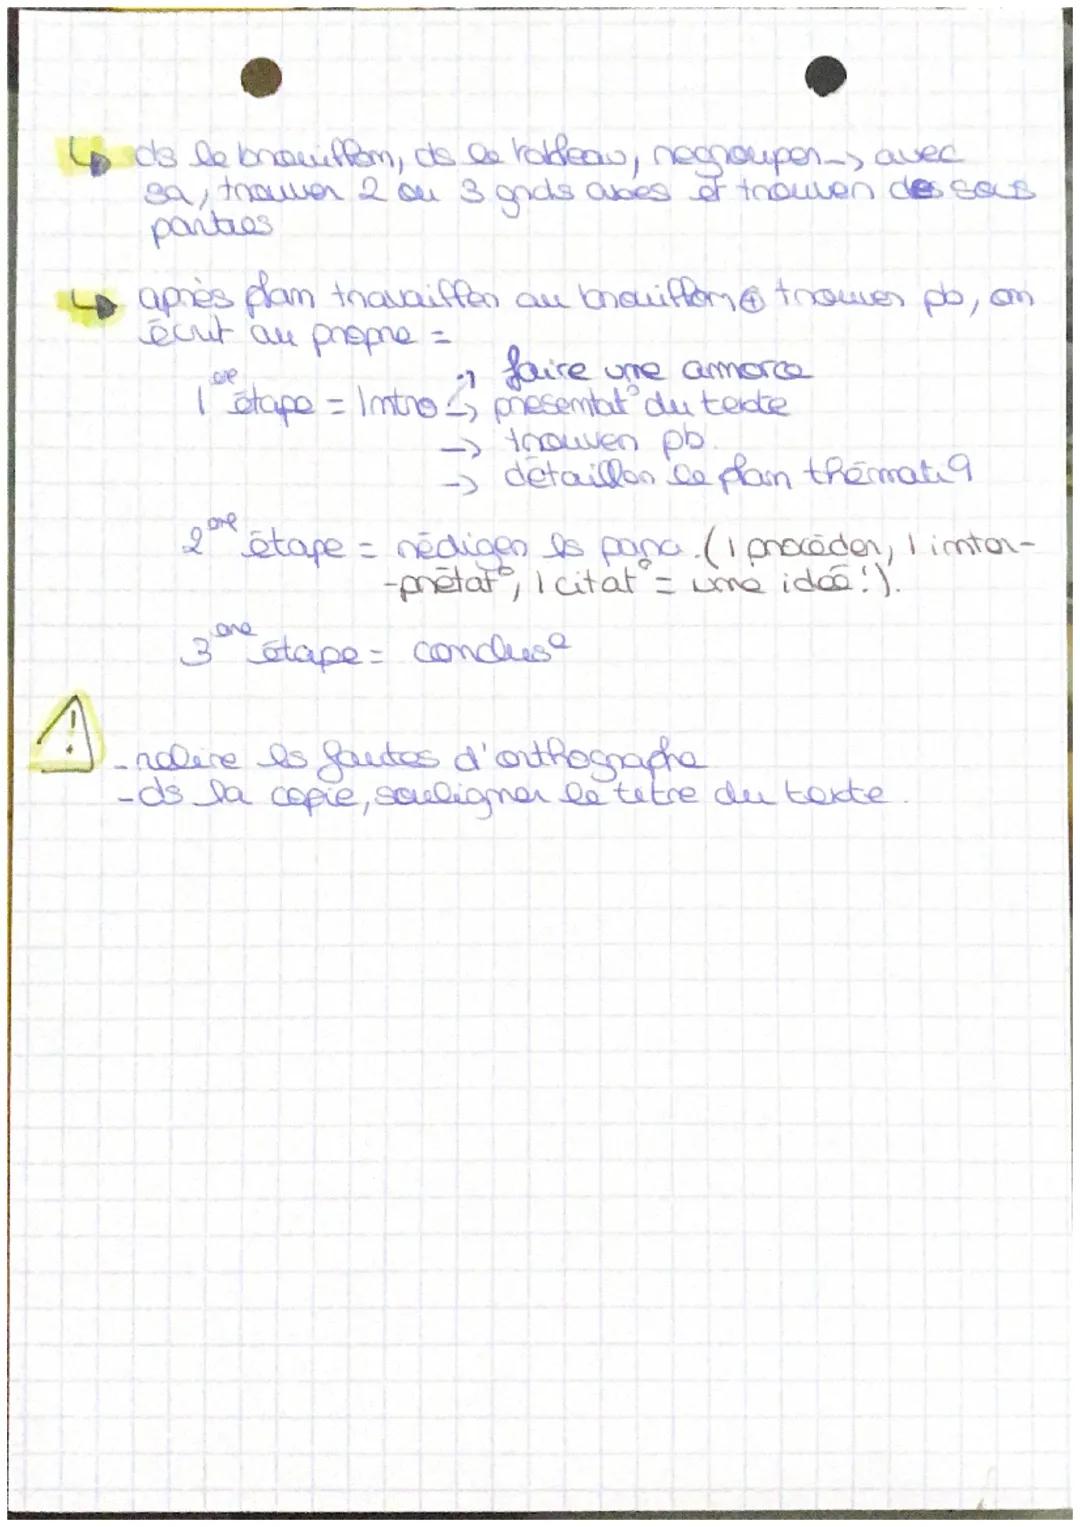 ↳ ds le brouillon, ds le tableau, regrouper -> avec
sa, trouver 2 ou 3 gnds axes et trouver des sous
parties
↳ après plan travailler au brouillon ⊕ trouver pb, on
écrit au propre =
-> faire une amorce
1ère étape = Intro -> présentat° du texte
-> trouver pb.
-> détailler le plan thématiq
2ème étape = rédiger ls para. (1 procéder, 1 inter-
-prétat°, 1 citat° = une idée !).
3ème étape = conclus°
⚠
- relire ls fautes d'orthographe
- ds la copie, souligner le titre du texte.